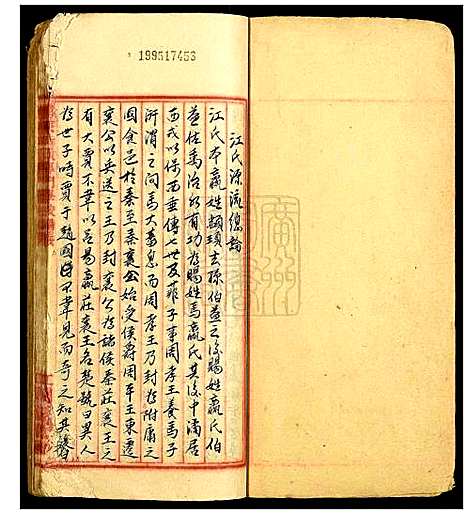 199517453
江氏源流總論
江氏本嬴姓顓頊玄孫伯益之後賜姓嬴氏伯
益佐禹治水有功為賜姓焉嬴氏其後中潏居
西戎以保西垂傳七世及菲子事周孝王養馬于
汧渭之间馬大蕃息而周孝王乃封為附庸之
國食邑於秦至秦襄公始受侯爵周平王東遷
襄公以兵送之王乃封襄公為諸侯秦莊襄王之
有大賈不韋以呂易嬴莊襄王名楚號曰異人
為世子時賈于趙國呂不韋見而奇之知其